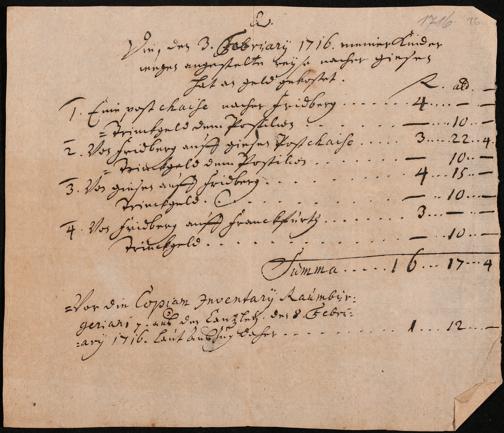 1716
den 3. Februarÿ 1716. meiner Kinder
wegen angestelte reÿse nacher giesen
hat an geld gekostet.
R. alb.
1. Eine post chaise nacher Fridberg ...... 4 — —
= Trinckgeld dem Postilion ...... — 10. —
2. Von Fridberg auff giesen Postchaise ... 3 .. 22 .. 4
= Trinckgeld dem Postilion ...... — 10. —
3. Von giesen auff Fridberg ........ 4 .. 15 .. —
Trinckgeld ........ — 10. —
4. Von Fridberg auff Franckfurth ...... 3 .. — —
Trinckgeld ........ — 10. —
Summa ..... 16 ... 17 ... 4
= Vor die Copiam Inventarÿ Raumbur:
geriani aus der Cantzleÿ, den 8 Febru:
=arÿ 1716. laut 1 ... 12 ... —